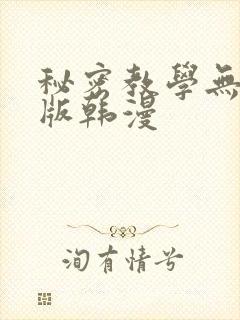 秘密教學無
版韩漫
洵有情兮